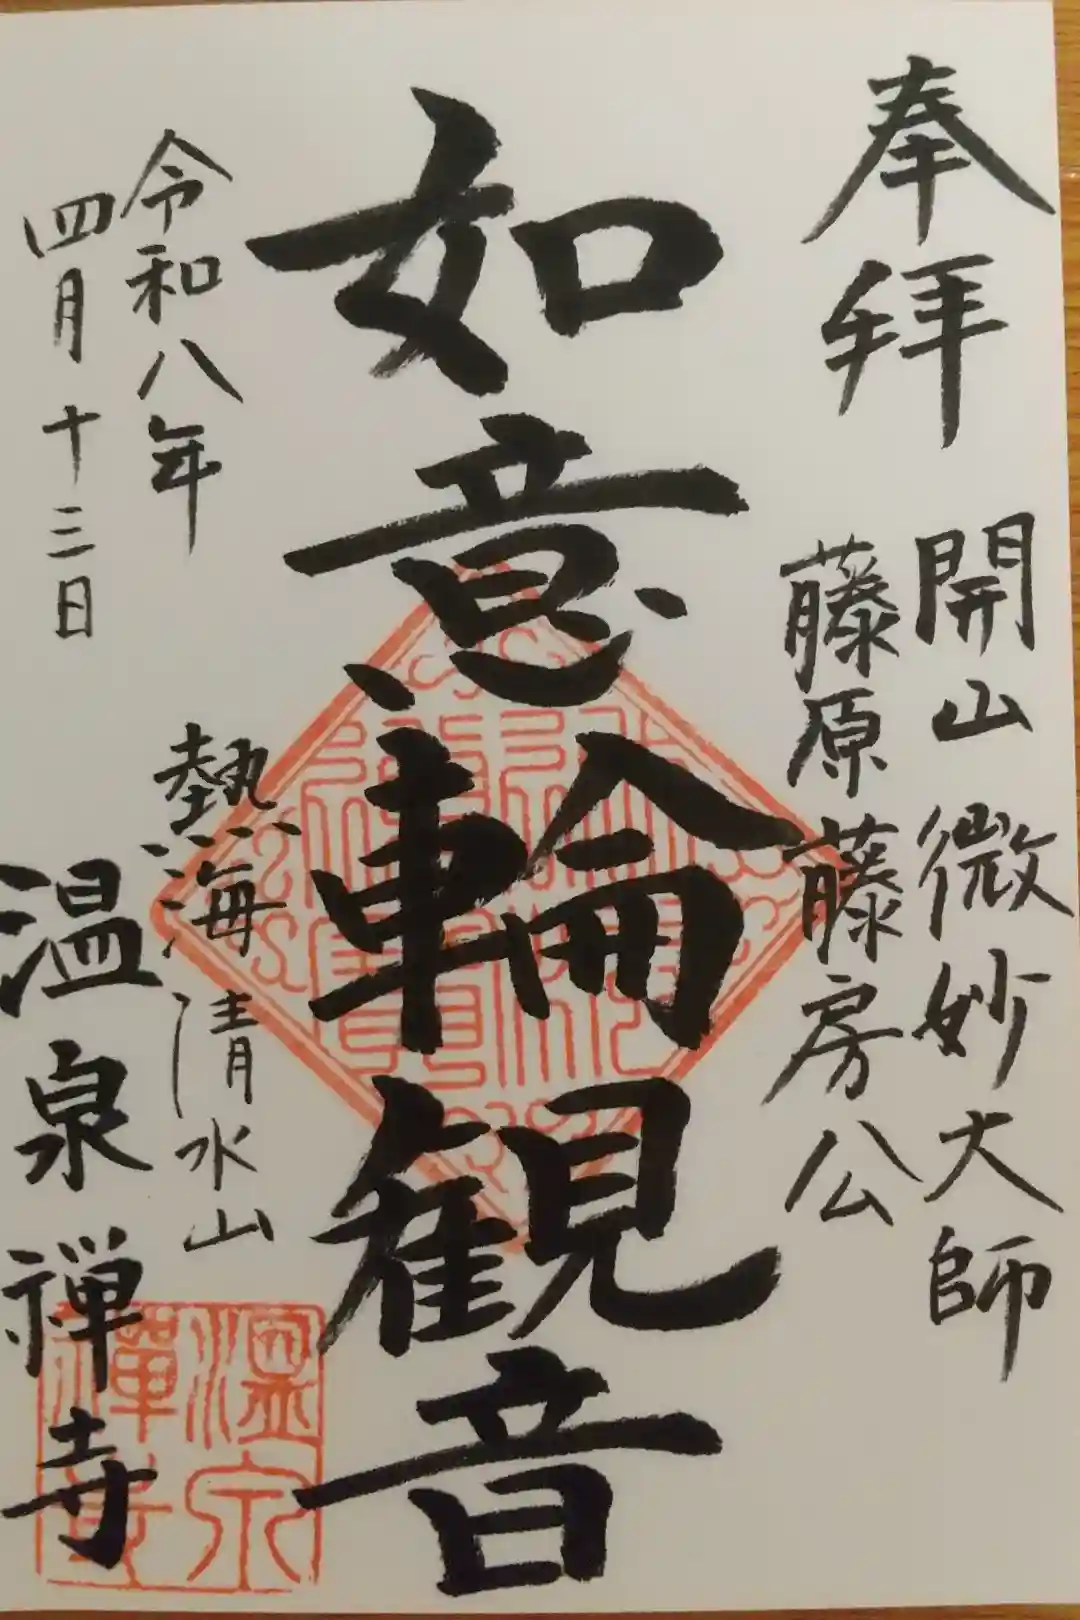 奉拝
開山微妙大師
藤原藤房公
如意輪観音
令和八年
四月十三日
熱海清水山
温泉禅寺